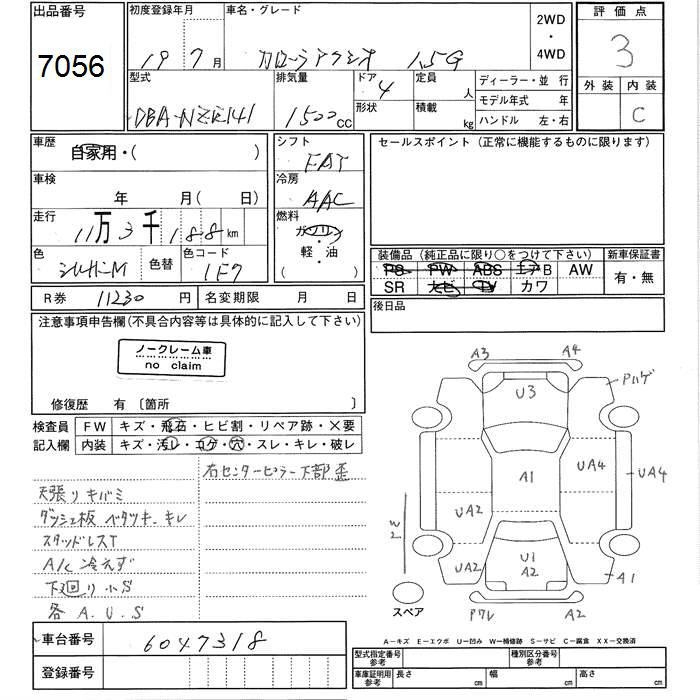 出品番号 初度登録年月 車名・グレード 2WD・4WD 評価点
7056 19 7月 カローラアクシオ 1.5G 3
型式 排気量 ドア 定員 ディーラー・並行 外装 内装
DBA-NZE141 1500cc 4 人 モデル年式 年 C
形状 積載 kg ハンドル 左・右
車歴 自家用・( ) シフト FAT セールスポイント (正常に機能するものに限ります)
車検 年 月(日) 冷房 AAC
走行 11万3千188km 燃料 ガソリン 軽・油 ( )
装備品 (純正品に限り○をつけて下さい) 新車保証書
色 シルバーM 色替 色コード 1F7
PS PW ABS エアB AW 有・無
SR ナビ TV カワ
R券 11230円 名変期限 月 日 後日品
注意事項申告欄(不具合内容等は具体的に記入して下さい)
ノークレーム車
no claim
修復歴 有 〔箇所 〕
検査員 FW キズ・飛石・ヒビ割・リペア跡・×要
記入欄 内装 キズ・汚レ・コゲ・穴・スレ・キレ・破レ
右センターピラー下部歪
天張りキバミ
ダッシュ板 ベタツキ、キレ
スタッドレスT
A/C 冷えず
下廻り小S
各 A.U.S
A3 A4
U3 Pハゲ
A1 UA4 UA4
UA2
UA2 U1 A2 A1
スペア PワレA2
A-キズ E-エクボ U-凹み W-補修跡 S-サビ C-腐食 XX-交換済
車台番号 6047318
型式指定番号 参考 種別区分番号 参考
登録番号
車庫証明用 参考 長さ cm 幅 cm 高さ cm